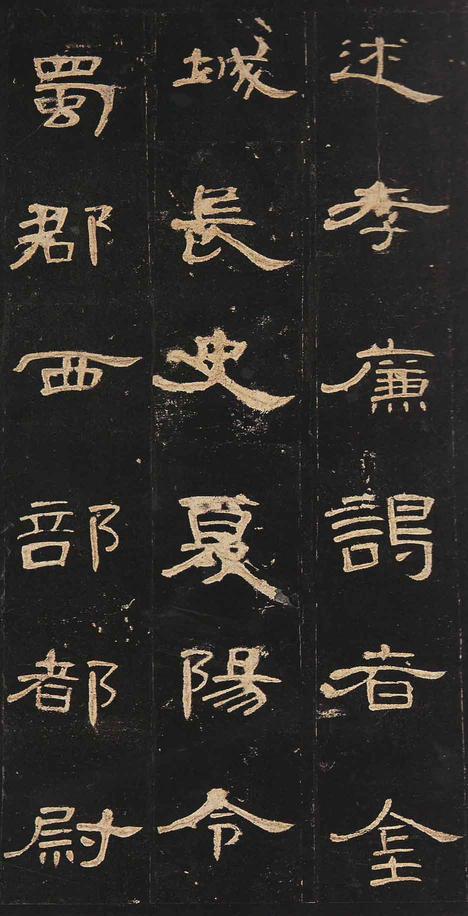 述孝廉謁者金
城長史夏陽令
蜀郡西部都尉